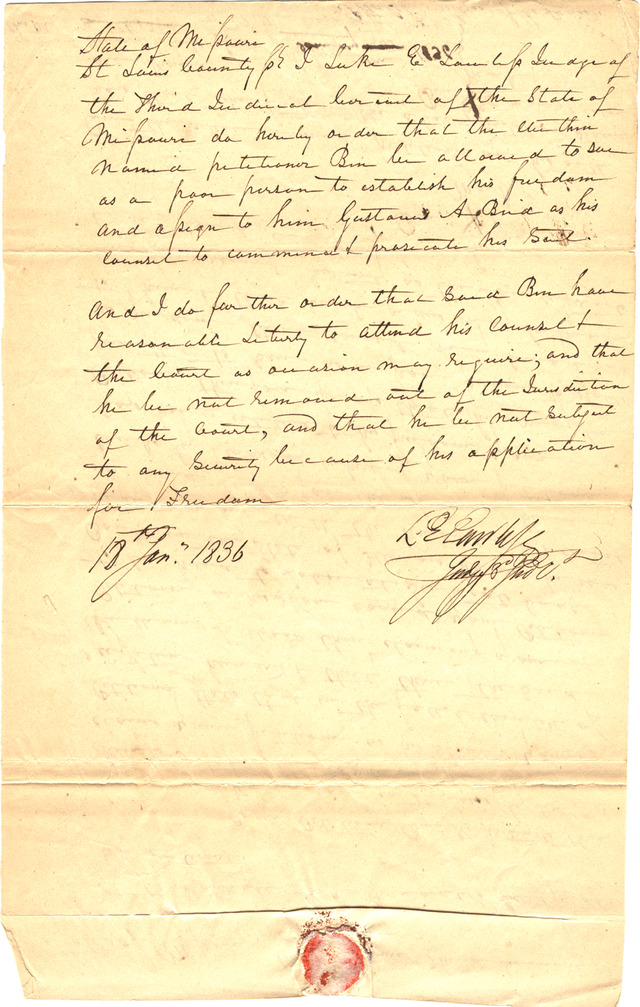 State of Missouri
St Louis County Sct I Luke E Lawless Judge of
the Third Judicial Circuit of the State of
Missouri do hereby order that the within
named petitioner Ben be allowed to sue
as a poor person to establish his freedom
and assign to him Gustavus A Bird as his
Counsel to commence & prosecute his Suit.
And I do further order that said Ben have
reasonable Liberty to attend his Counsel &
the Court as occasion may require; and that
he be not removed out of the Jurisdiction
of the Court, and that he be not Subject
to any Severity because of his application
for Freedom
18th Jany. 1836
L. E Lawless
Judge 3d Jud Ct